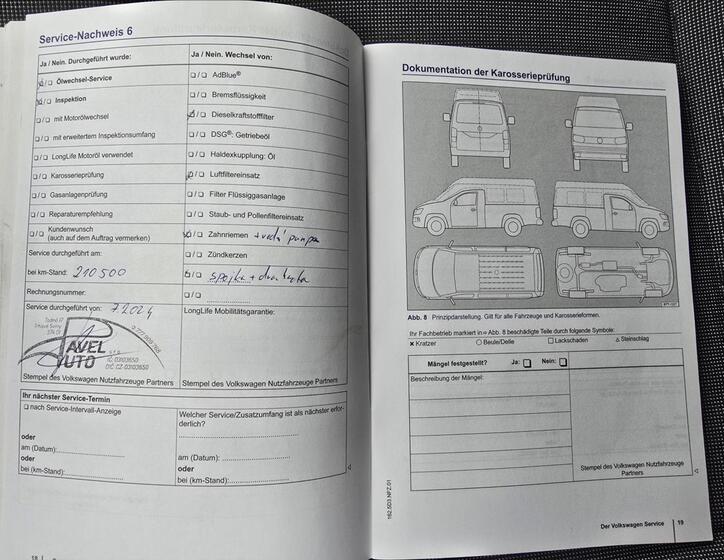 Service-Nachweis 6
Ja / Nein. Durchgeführt wurde:
❏/❏ Ölwechsel-Service
❏/❏ Inspektion
❏/❏ mit Motorölwechsel
❏/❏ mit erweitertem Inspektionsumfang
❏/❏ LongLife Motoröl verwendet
❏/❏ Karosserieprüfung
❏/❏ Gasanlagenprüfung
❏/❏ Reparaturempfehlung
❏/❏ Kundenwunsch
(auch auf dem Auftrag vermerken)
Service durchgeführt am:
bei km-Stand: 210 500
Rechnungsnummer:
Service durchgeführt von: 7 2024
PAVEL
AUTO
s r.o.
IČ: 03103650
DIČ: CZ-03103650
Stempel des Volkswagen Nutzfahrzeuge Partners
Ja / Nein. Wechsel von:
❏/❏ AdBlue®
❏/❏ Bremsflüssigkeit
❏/❏ Dieselkraftstofffilter
❏/❏ DSG®: Getriebeöl
❏/❏ Haldexkupplung: Öl
❏/❏ Luftfiltereinsatz
❏/❏ Filter Flüssiggasanlage
❏/❏ Staub- und Pollenfiltereinsatz
❏/❏ Zahnriemen + vodní pumpa
❏/❏ Zündkerzen
❏/❏ spojka +
❏/❏
LongLife Mobilitätsgarantie:
Stempel des Volkswagen Nutzfahrzeuge Partners
Ihr nächster Service-Termin
❏ nach Service-Intervall-Anzeige
oder
am (Datum):
oder
bei (km-Stand):
Welcher Service/Zusatzumfang ist als nächster erforderlich?
am (Datum):
oder
bei (km-Stand):
18
Dokumentation der Karosserieprüfung
Abb. 8 Prinzipdarstellung. Gilt für alle Fahrzeuge und Karosserieformen.
Ihr Fachbetrieb markiert in ⇒ Abb. 8 beschädigte Teile durch folgende Symbole:
✕ Kratzer ○ Beule/Delle □ Lackschaden △ Steinschlag
Mängel festgestellt? Ja: ❏ Nein: ❏
Beschreibung der Mängel:
Stempel des Volkswagen Nutzfahrzeuge
Partners
162.5D3.NFZ.01
Der Volkswagen Service 19